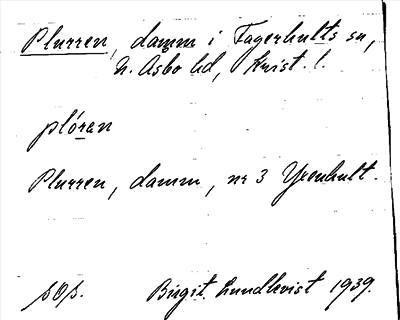 Plurren, damm i Fagerhults sn,
N. Åsbo hd, Krist. l.
plóran
Plurren, damm, nr 3 Yxenhult.
SOS. Birgit Lundkvist 1939.